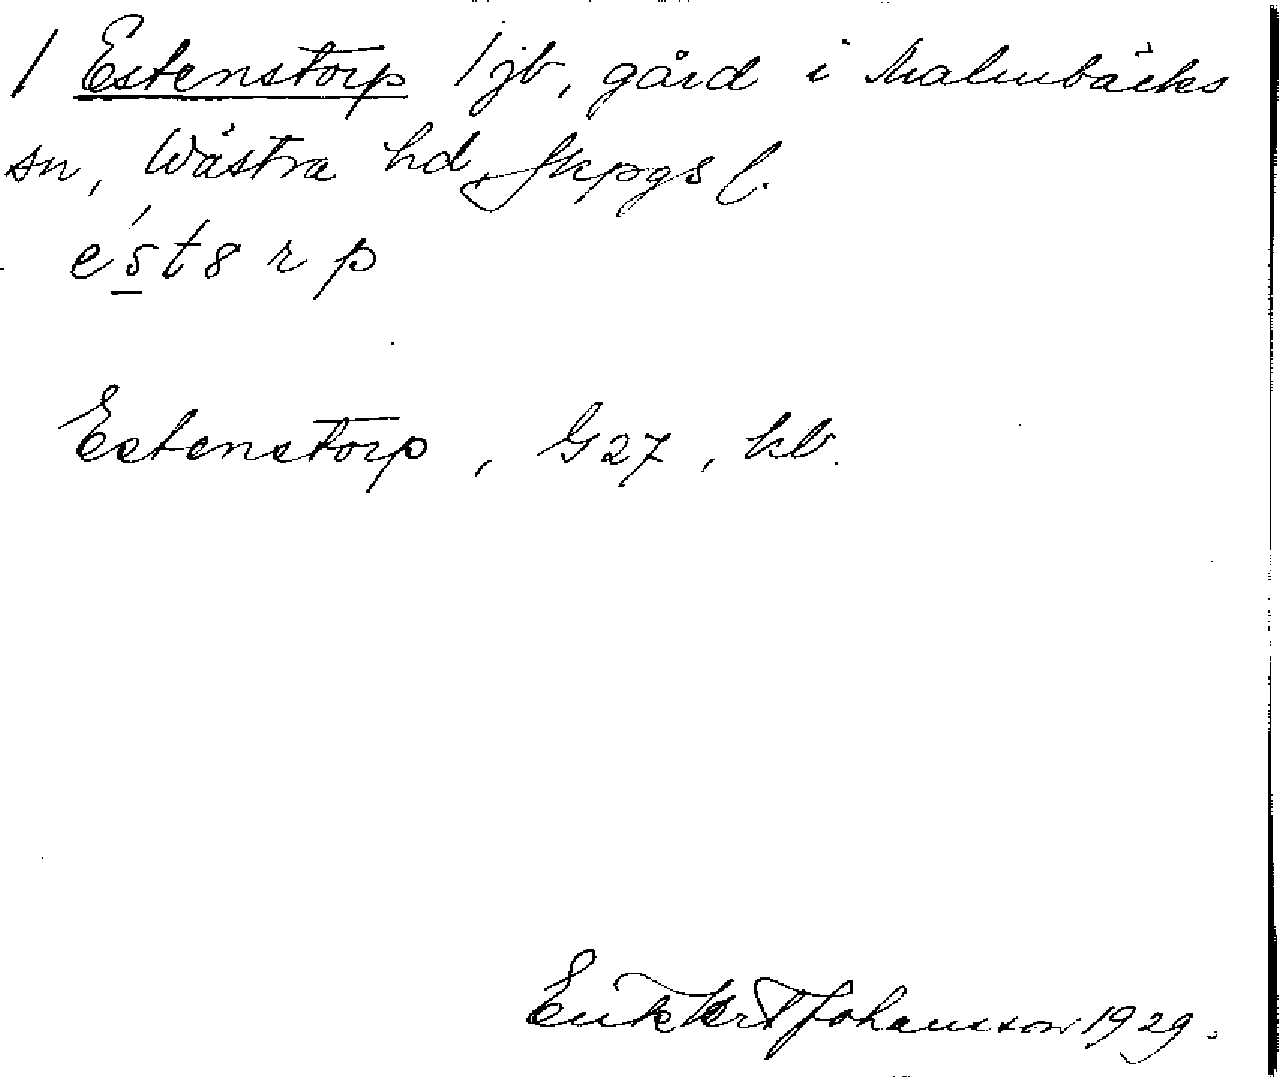 / Estenstorp 1 jb, gård i Malmbäcks
sn, Wästra hd, Jkpgs l.
éstsrp
Estenstorp, G27, kb.
Erik Johansson 1929.